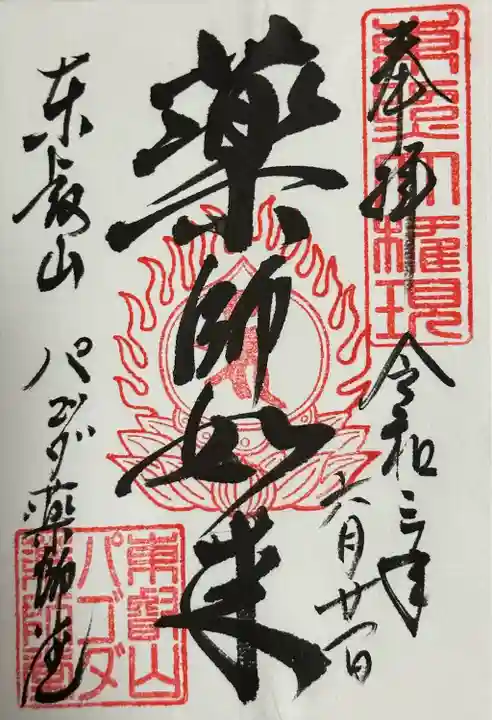 奉拝
東照大権現
令和三年
六月廿一日
薬師如来
東叡山
パゴダ薬師堂
東叡山
パゴダ
薬師堂